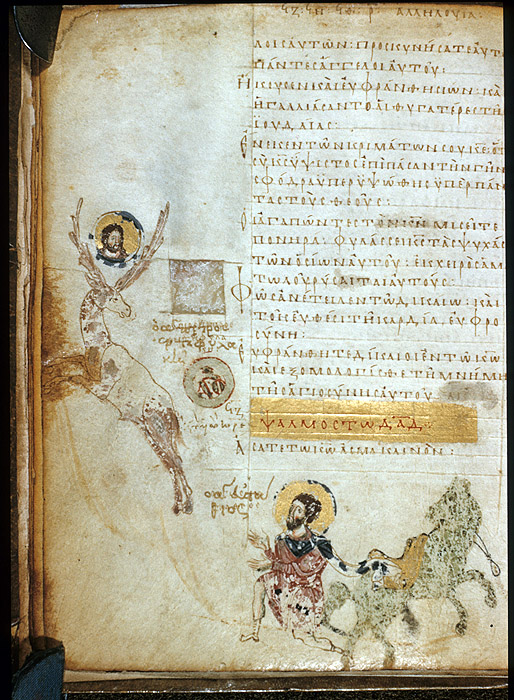 ΑΛΛΗΛΟΥΙΑ
ΛΟΙС ΑΥΤΩΝ: ΠΡΟСΚΥΝΗСΑΤΕ ΑΥΤ
ΠΑΝΤΕС ΑΓΓΕΛΟΙ ΑΥΤΟΥ:
ΗΚΟΥСΕΝ ΚΑΙ ΕΥΦΡΑΝΘΗ СΙΩΝ: ΚΑΙ
ΗΓΑΛΛΙΑСΑΝΤΟ ΑΙ ΘΥΓΑΤΕΡΕС ΤΗС
ΙΟΥΔΑΙΑС:
ΕΝΕΚΕΝ ΤΩΝ ΚΡΙΜΑΤΩΝ СΟΥ ΚΕ: ΟΤΙ
СΥ ΚС ΥΨΙСΤΟС ΕΠΙ ΠΑСΑΝ ΤΗΝ ΓΗΝ
СΦΟΔΡΑ ΥΠΕΡΥΨΩΘΗС ΥΠΕΡ ΠΑΝ
ΤΑС ΤΟΥС ΘΕΟΥС:
ΟΙ ΑΓΑΠΩΝΤΕС ΤΟΝ ΚΝ ΜΙСΕΙΤΕ
ΠΟΝΗΡΑ: ΦΥΛΑССΕΙ ΚС ΤΑС ΨΥΧΑС
ΤΩΝ ΟСΙΩΝ ΑΥΤΟΥ: ΕΚ ΧΕΙΡΟС ΑΜΑΡ
ΤΩΛΟΥ ΡΥСΕΤΑΙ ΑΥΤΟΥС:
ΦΩС ΑΝΕΤΕΙΛΕΝ ΤΩ ΔΙΚΑΙΩ: ΚΑΙ
ΤΟΙС ΕΥΘΕСΙ ΤΗ ΚΑΡΔΙΑ, ΕΥΦΡΟ
СΥΝΗ:
ΕΥΦΡΑΝΘΗΤΕ ΔΙΚΑΙΟΙ ΕΝ ΤΩ ΚΩ
ΚΑΙ ΕΞΟΜΟΛΟΓΕΙСΘΕ ΤΗ ΜΝΗΜΗ
ΤΗС ΑΓΙΟСΥΝΗС ΑΥΤΟΥ
ΨΑΛΜΟС ΤΩ ΔΑΔ:
ΑСΑΤΕ ΤΩ ΚΩ ΑСΜΑ ΚΑΙΝΟΝ:
ο α ευστα
θιος